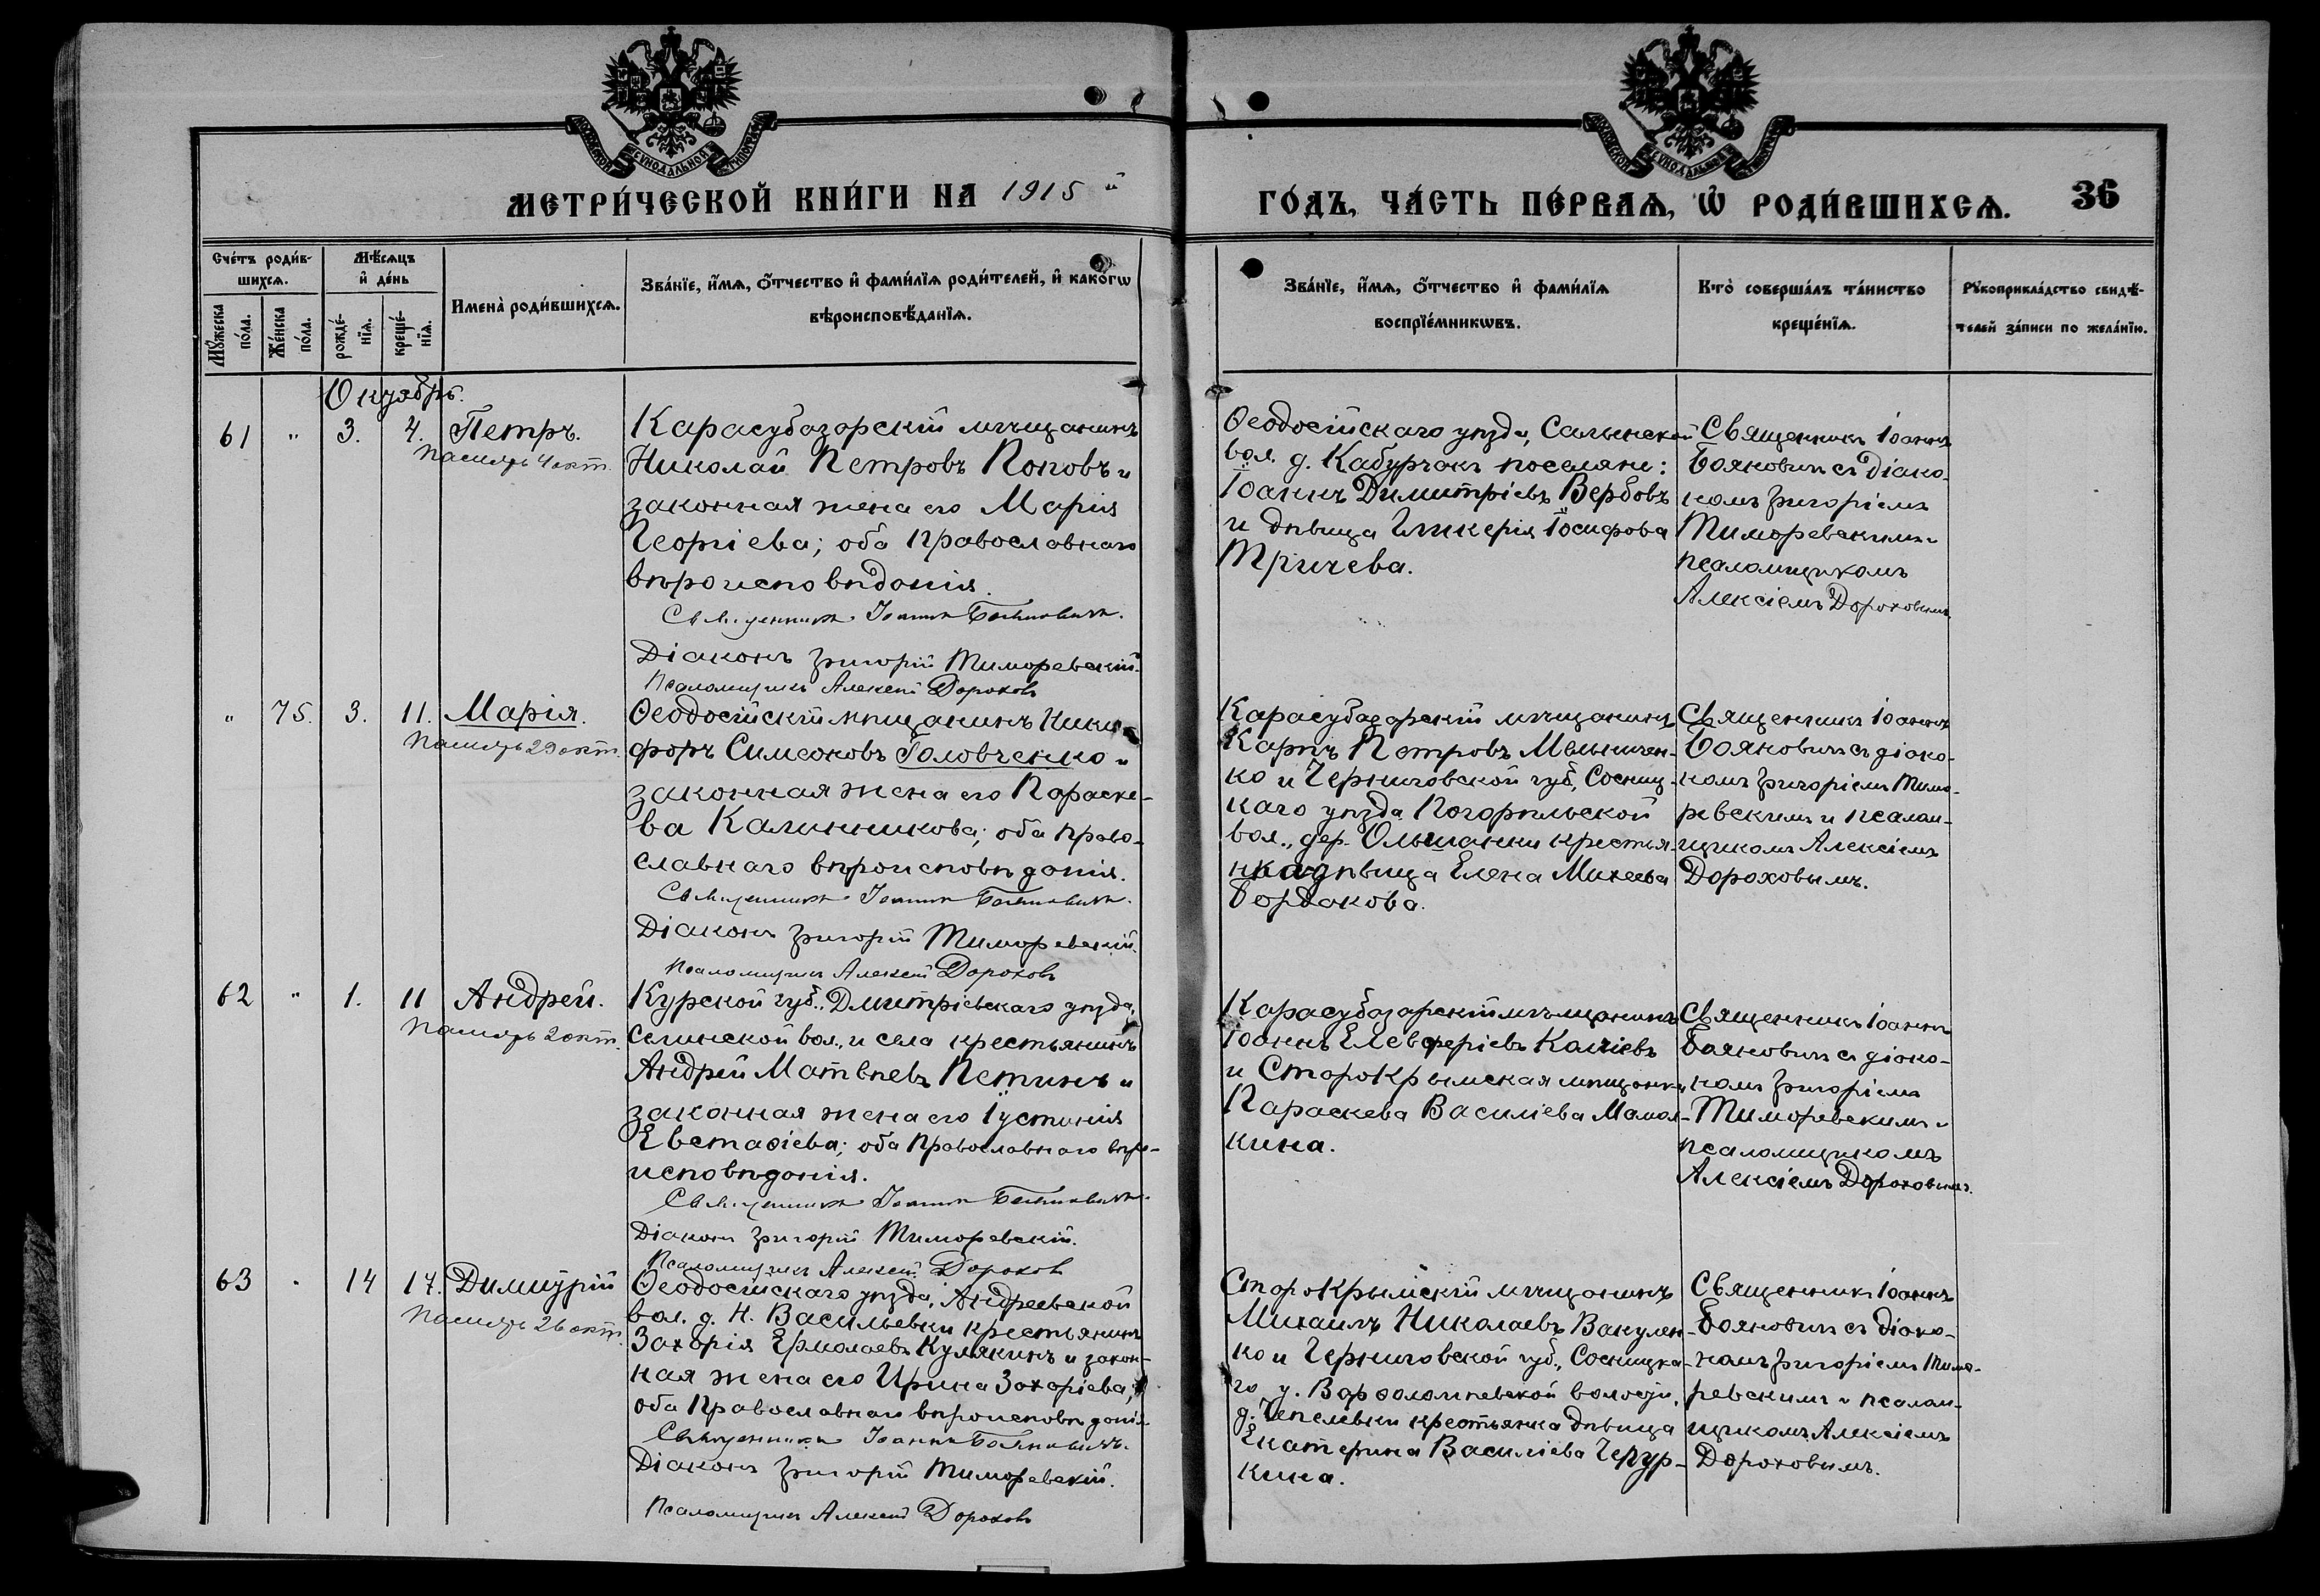 МЕТРИ́ЧЕСКОЙ КНИ́ГИ НА 1915 й
ГО́ДЪ, ЧА́СТЬ ПЕ́РВАѦ, Ѡ҆ РОДИ́ВШИХСѦ. 36
Сче́тъ роди́в-
шихсѧ.
Мꙋ́жеска по́ла.
Же́нска по́ла.
Мѣ́сѧцъ
и҆ де́нь
рожде́-
нїѧ.
креще́-
нїѧ.
Имена̀ роди́вшихсѧ.
Зва́нїе, и҆́мѧ, ѻ҆́тчество и҆ фами́лїѧ роди́телей, и҆ како́гѡ
вѣроисповѣ́данїѧ.
Зва́нїе, и҆́мѧ, ѻ҆́тчество и҆ фами́лїѧ
воспрїе́мникѡвъ.
Кто̀ соверша́лъ та́инство
креще́нїѧ.
Рꙋкоприкла́дство свидѣ́-
телей за́писи по жела́нїю.
Октябрь.
61 " 3. 4. Петръ.
Память 4 окт.
Карасубазарскій мѣщанинъ
Николай Петровъ Поповъ и
законная жена его Марія
Георгіева; оба православнаго
вѣроисповѣданія.
Священникъ Іоаннъ Бояновичъ.
Діаконъ Григорій Тиморевскій.
Псаломщикъ Алексей Дороховъ
Ѳеодосійскаго уѣзда, Салынской
вол. д. Кабурчакъ поселяне:
Іоаннъ Димитріевъ Вербовъ
и дѣвица Гликерія Іосифова
Тричева.
Священникъ Іоаннъ
Бояновичъ съ діако-
номъ Григоріемъ
Тиморевскимъ и
псаломщикомъ
Алексіемъ Дороховымъ.
" 75. 3. 11. Марія.
Память 29 окт.
Ѳеодосійскій мѣщанинъ Ники-
форъ Симеоновъ Головченко и
законная жена его Параске-
ва Калинникова; оба право-
славнаго вѣроисповѣданія.
Священникъ Іоаннъ Бояновичъ.
Діаконъ Григорій Тиморевскій.
Псаломщикъ Алексей Дороховъ
Карасубазарскій мѣщанинъ
Карпъ Петровъ Мельничен-
ко и Черниговской губ., Сосниц-
каго уѣзда Погорѣльской
вол., дер. Ольшанки крестья-
нка дѣвица Елена Михеева
Бордакова.
Священникъ Іоаннъ
Бояновичъ съ діако-
номъ Григоріемъ Тимо-
ревскимъ и псалом-
щикомъ Алексіемъ
Дороховымъ.
62 " 1. 11 Андрей.
Память 2 окт.
Курской губ., Дмитріевскаго уѣзда,
Селинской вол., и села крестьянинъ
Андрей Матвѣевъ Петинъ и
законная жена его Іустинія
Евстафіева; оба православнаго вѣро-
исповѣданія.
Священникъ Іоаннъ Бояновичъ.
Діаконъ Григорій Тиморевскій.
Псаломщикъ Алексей Дороховъ
Карасубазарскій мѣщанинъ
Іоаннъ Елевферіевъ
и Старокрымская мѣщанка
Параскева Василіева Мамол-
кина.
Священникъ Іоаннъ
Бояновичъ съ діако-
номъ Григоріемъ
Тиморевскимъ и
псаломщикомъ
Алексіемъ Дороховымъ.
63 " 14 17. Димитрій
Память 26 окт.
Ѳеодосійскаго уѣзда, Андреевской
вол. д. Н. Васильевки крестьянинъ
Захарія Ермолаевъ Кулякинъ и закон-
ная жена его Ирина Захаріева;
оба православнаго вѣроисповѣданія
Священникъ Іоаннъ Бояновичъ.
Діаконъ Григорій Тиморевскій.
Псаломщикъ Алексей Дороховъ
Старокрымскій мѣщанинъ
Михаилъ Николаевъ Вакулен-
ко и Черниговской губ., Сосницка-
го у. Варфоломѣевской волости,
д. Чепелевки крестьянка дѣвица
Екатерина Василіева Чепур-
кина.
Священникъ Іоаннъ
Бояновичъ съ діако-
номъ Григоріемъ Тимо-
ревскимъ и псалом-
щикомъ Алексіемъ
Дороховымъ.